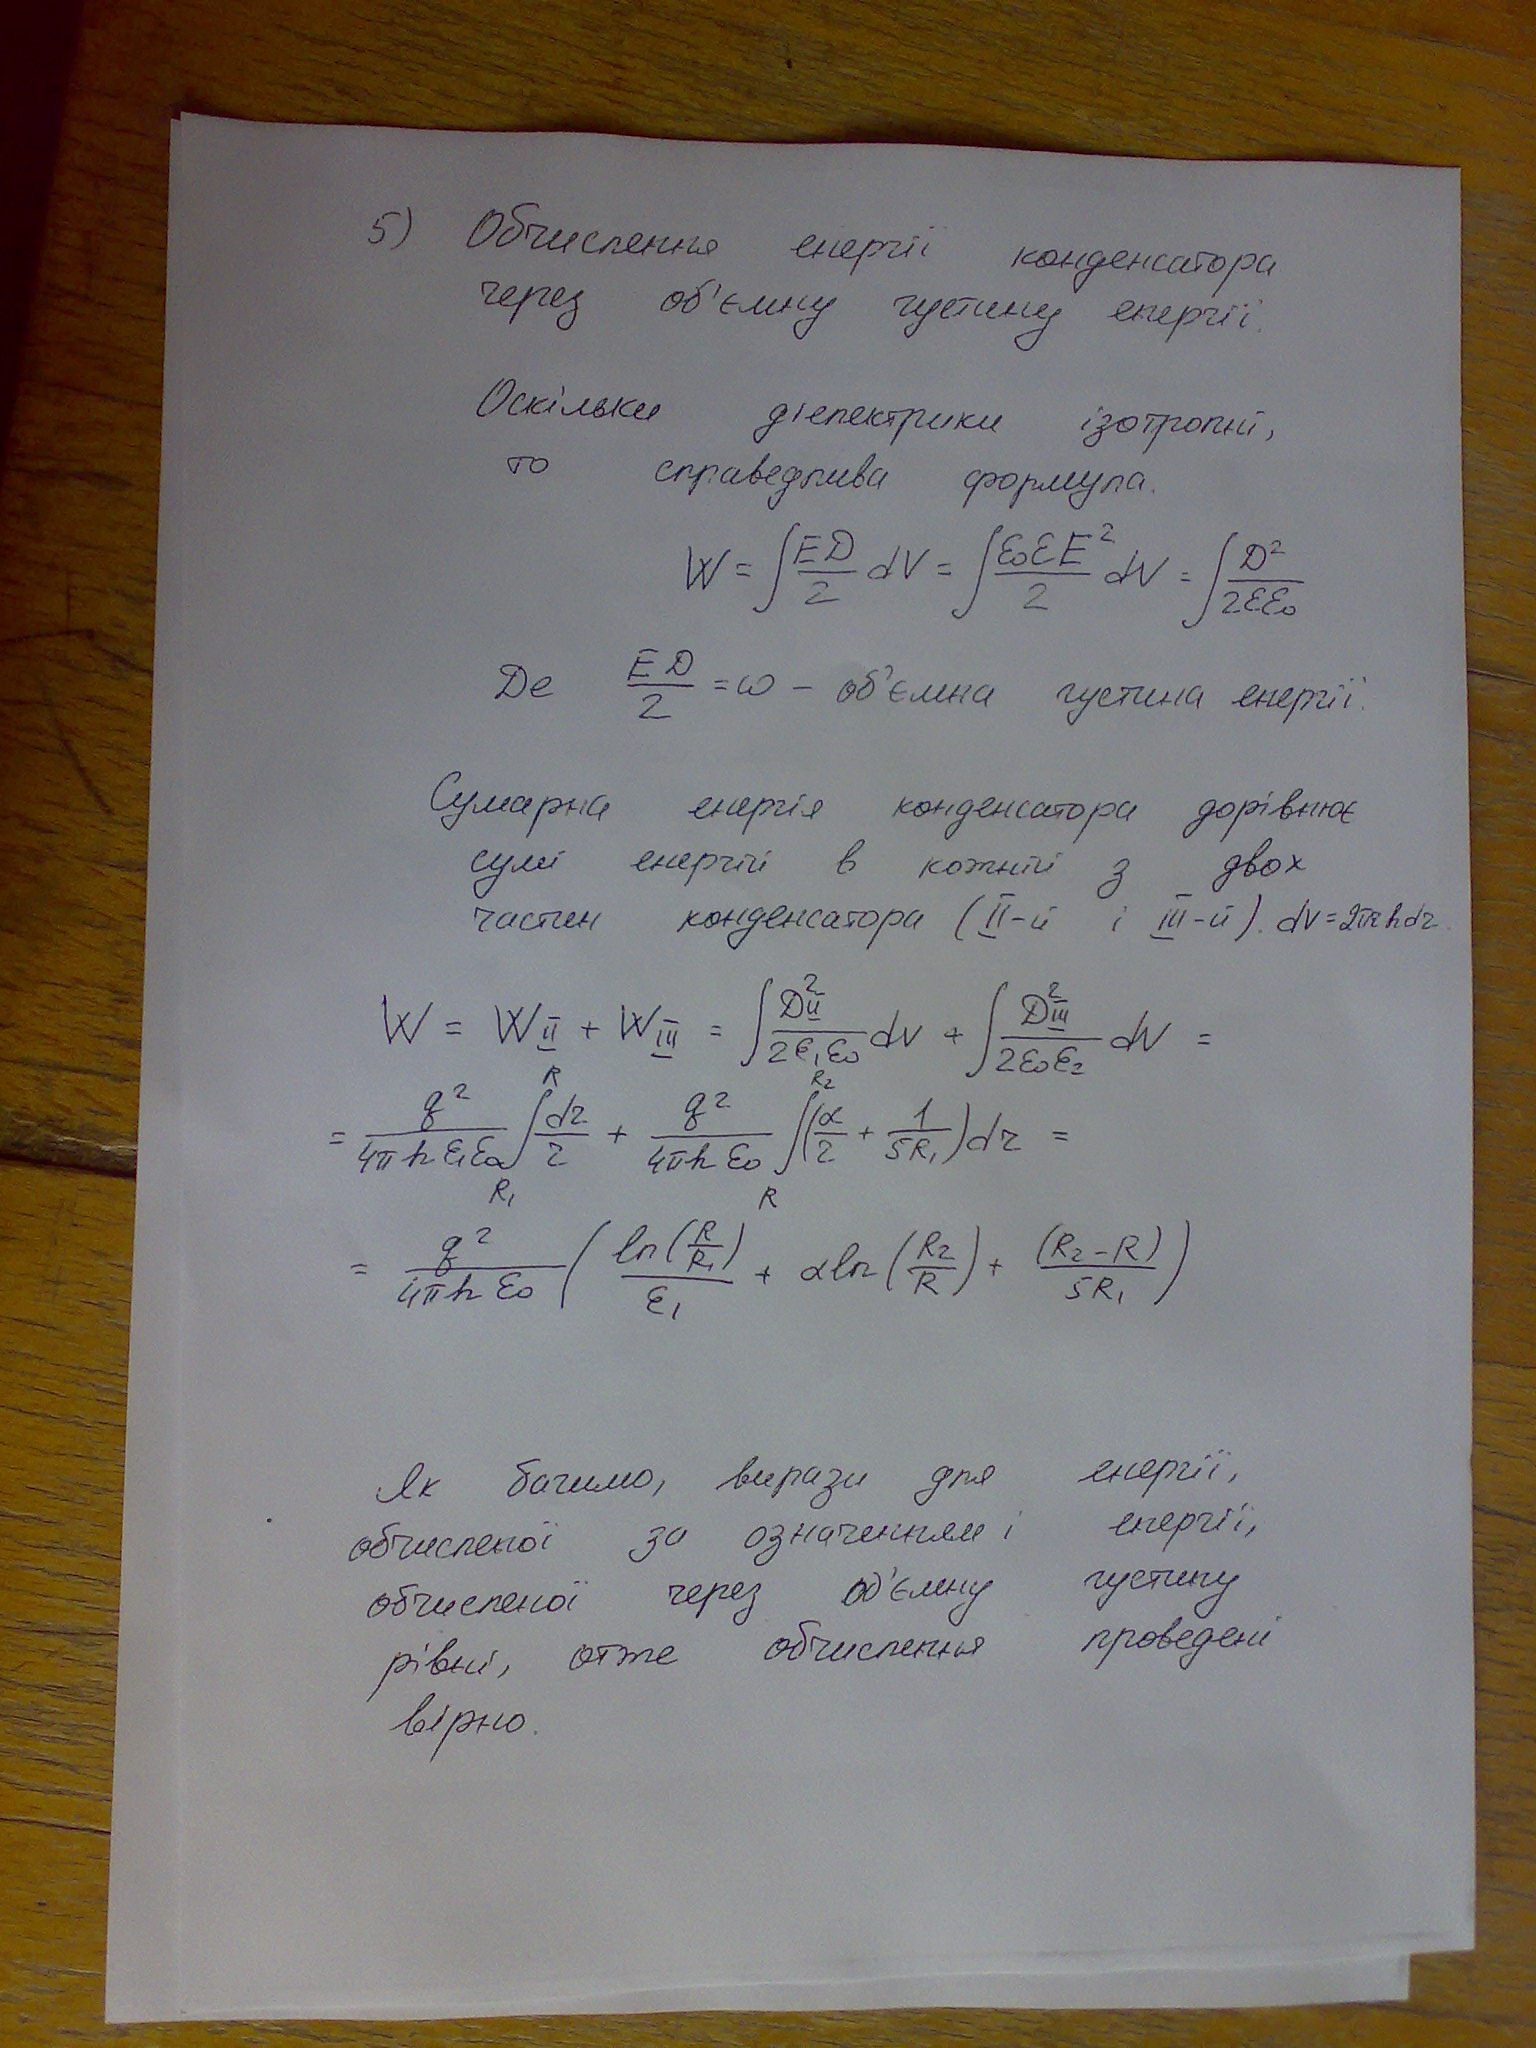 5) Обчислення енергії конденсатора
через об'ємну густину енергії.
Оскільки діелектрики ізотропні,
то справедлива формула.
W = ∫ ED/2 dV = ∫ ε₀εE²/2 dV = ∫ D²/2εε₀
Де ED/2 = ω – об'ємна густина енергії.
Сумарна енергія конденсатора дорівнює
сумі енергій в кожній з двох
частин конденсатора (II-й і III-й). dV = 2πrhdr.
W = W_II + W_III = ∫ D²_II/2ε₁ε₀ dV + ∫ D²_III/2ε₀ε₂ dV =
= q²/4πhε₁ε₀ ∫_{R₁}^{R} dr/r + q²/4πhε₀ ∫_{R}^{R₂} (α/r + 1/5R₁)dr =
= q²/4πhε₀ ( ln(R/R₁)/ε₁ + αln(R₂/R) + (R₂-R)/5R₁ )
Як бачимо, вирази для енергії,
обчисленої за означенням і енергії,
обчисленої через об'ємну густину
рівні, отже обчислення проведені
вірно.